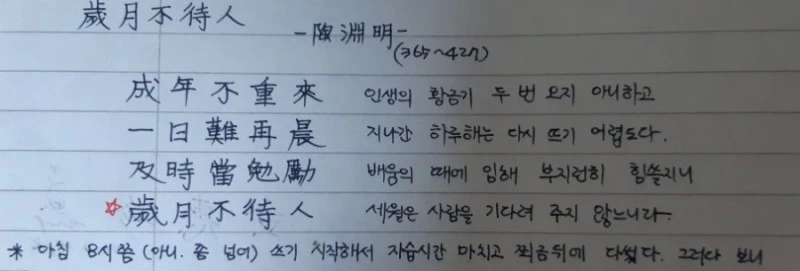 歲月不待人
-陶淵明-
(365~427)
成年不重來 인생의 황금기 두 번 오지 아니하고
一日難再晨 지나간 하루해는 다시 뜨기 어렵도다.
及時當勉勵 배움의 때에 임해 부지런히 힘쓸지니
☆歲月不待人 세월은 사람을 기다려 주지 않느니라.
* 아침 8시쯤 (아니. 좀 넘어) 쓰기 시작해서 자습시간 마치고 쬐금뒤에 다썼다. 그러다 보니